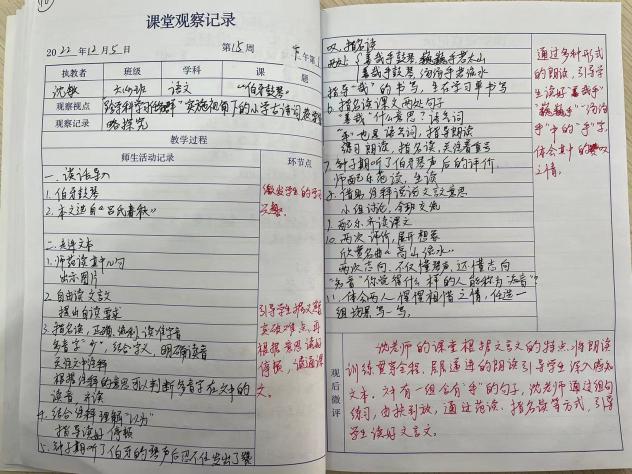 课堂观察记录
2022年12月5日 第15周 午第1
执教者 班级 学科 课 题
沈敏 六(4)班 语文 《伯牙鼓琴》
观察视点 "跨学科学习任务群"实施视角下的小学古诗词教学策
观察记录 略探究
教学过程
师生活动记录 环节点
一、谈话导入
1. 伯牙鼓琴
2. 本文选自《吕氏春秋》
激发学生的学习
兴趣。
二、走进文本
1. 师范读其中几句
出示图片
2. 自由读文言文
提出自读要求
3. 指名读,正确、流利读准字音
多音字"少",结合字义,明确读音
关注文中注释
根据注释的意思可以判断多音字在文中的
读音,齐读
4. 结合注释理解"以为"
指导读好停顿
5. 钟子期听了伯牙的琴声后忍不住发出了赞
引导学生抓文言
突破难点,再
根据意思读好
停顿,读通课
文。
叹,指名读
出示:善哉乎鼓琴,巍巍乎若太山
善哉乎鼓琴,汤汤乎若流水
指导"哉"的书写,生在学习单书写
6. 指名读课文两处句子
"善哉"什么意思?语气词
"乎"也是语气词,指导朗读
练习朗读,指名读,关注着重号
7. 钟子期听了伯牙琴声后的评价
师配乐范读,生读
8. 借助注释说说文言文意思
小组讨论,全班交流
9. 配乐齐读课文
10. 两次评价,展开想象
欣赏名曲《高山流水》
两次志向,不仅懂琴声,还懂志向
"知音"你觉得什么样的人能称为"知音"?
11. 体会两人惺惺相惜之情,任选一
组场景写一写。
通过多种形式
的朗读,引导学
生读好"善哉乎"
"巍巍乎""汤汤
乎"中的"乎"字,
体会其中的
之情。
观后微评
沈老师的课堂根据文言文的特点,将朗读
训练贯穿全程,
文本。对有一组含有"乎"的句子,沈老师通过组句
练习,由扶到放,通过范读、指名读等方式,引导
学生读好文言文。